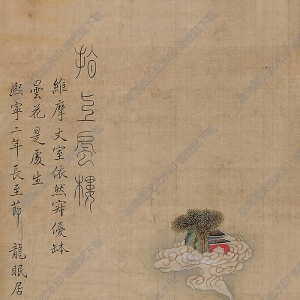 指上蜃樓
維摩丈室依然穽優缽
曇花是處生
熙寧二年長至節 龍眠居